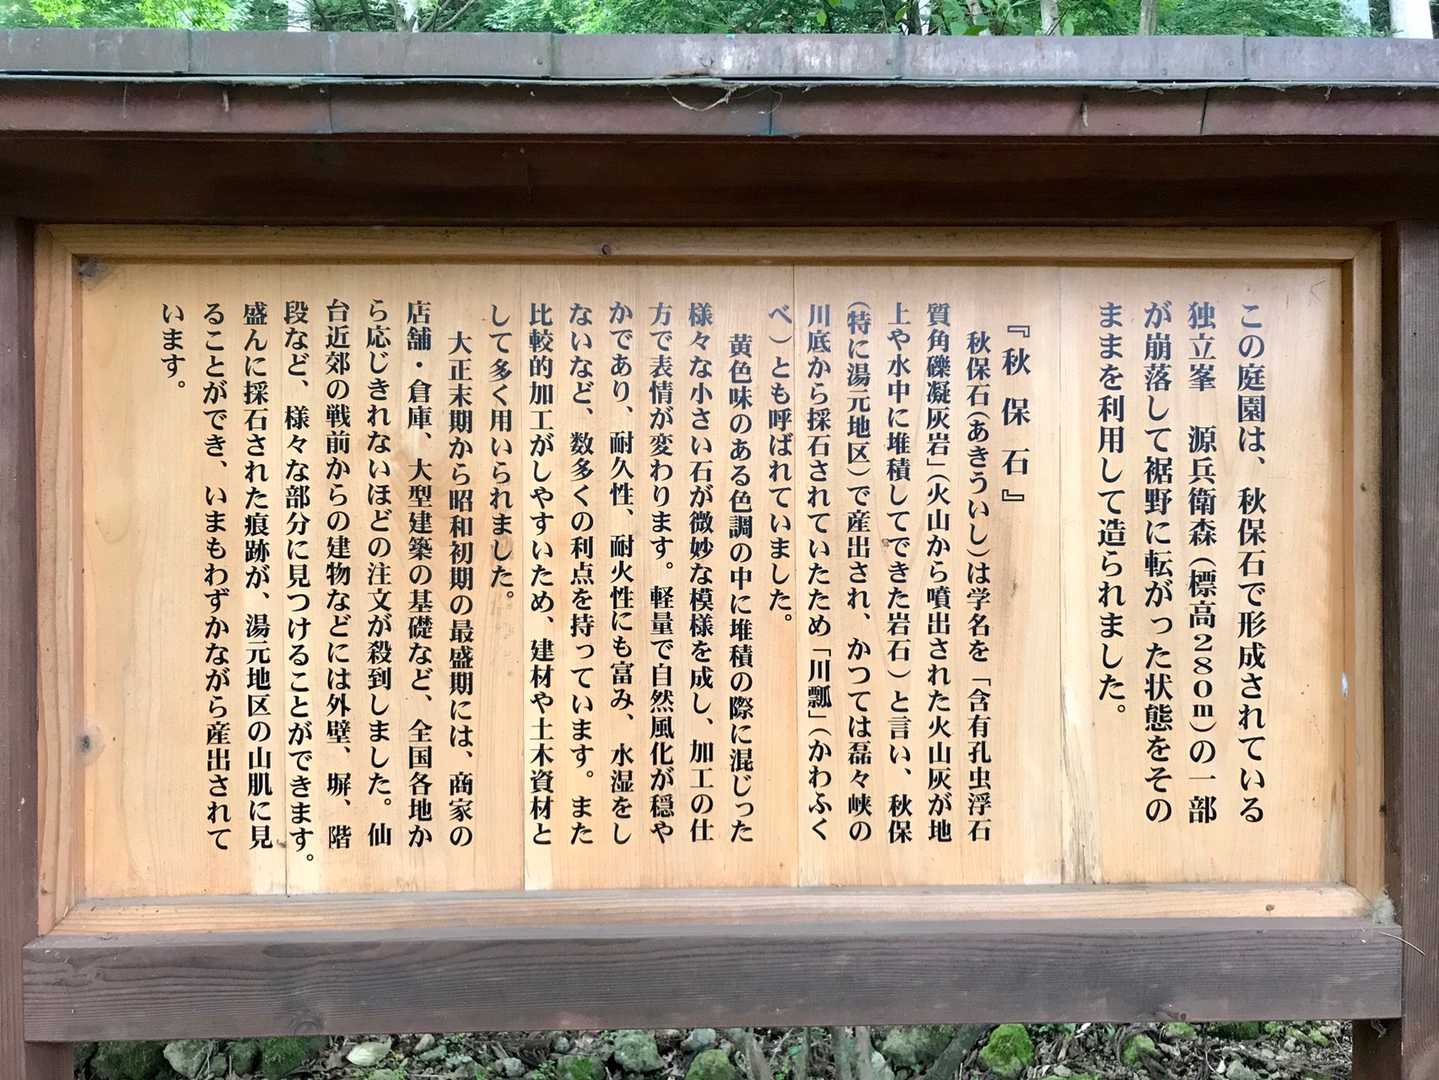 この庭園は、秋保石で形成されている
独立峯　源兵衛森（標高２８０ｍ）の一部
が崩落して裾野に転がった状態をその
ままを利用して造られました。
『秋保石』
秋保石(あきういし)は学名を「含有孔虫浮石
質角礫凝灰岩」(火山から噴出された火山灰が地
上や水中に堆積してできた岩石)と言い、秋保
(特に湯元地区)で産出され、かつては磊々峡の
川底から採石されていたため「川瓢」(かわふく
べ)とも呼ばれていました。
黄色味のある色調の中に堆積の際に混じった
様々な小さい石が微妙な模様を成し、加工の仕
方で表情が変わります。軽量で自然風化が穏や
かであり、耐久性、耐火性にも富み、水湿をし
ないなど、数多くの利点を持っています。また
比較的加工がしやすいため、建材や土木資材と
して多く用いられました。
大正末期から昭和初期の最盛期には、商家の
店舗・倉庫、大型建築の基礎など、全国各地か
ら応じきれないほどの注文が殺到しました。仙
台近郊の戦前からの建物などには外壁、塀、階
段など、様々な部分に見つけることができます。
盛んに採石された痕跡が、湯元地区の山肌に見
ることができ、いまもわずかながら産出されて
います。